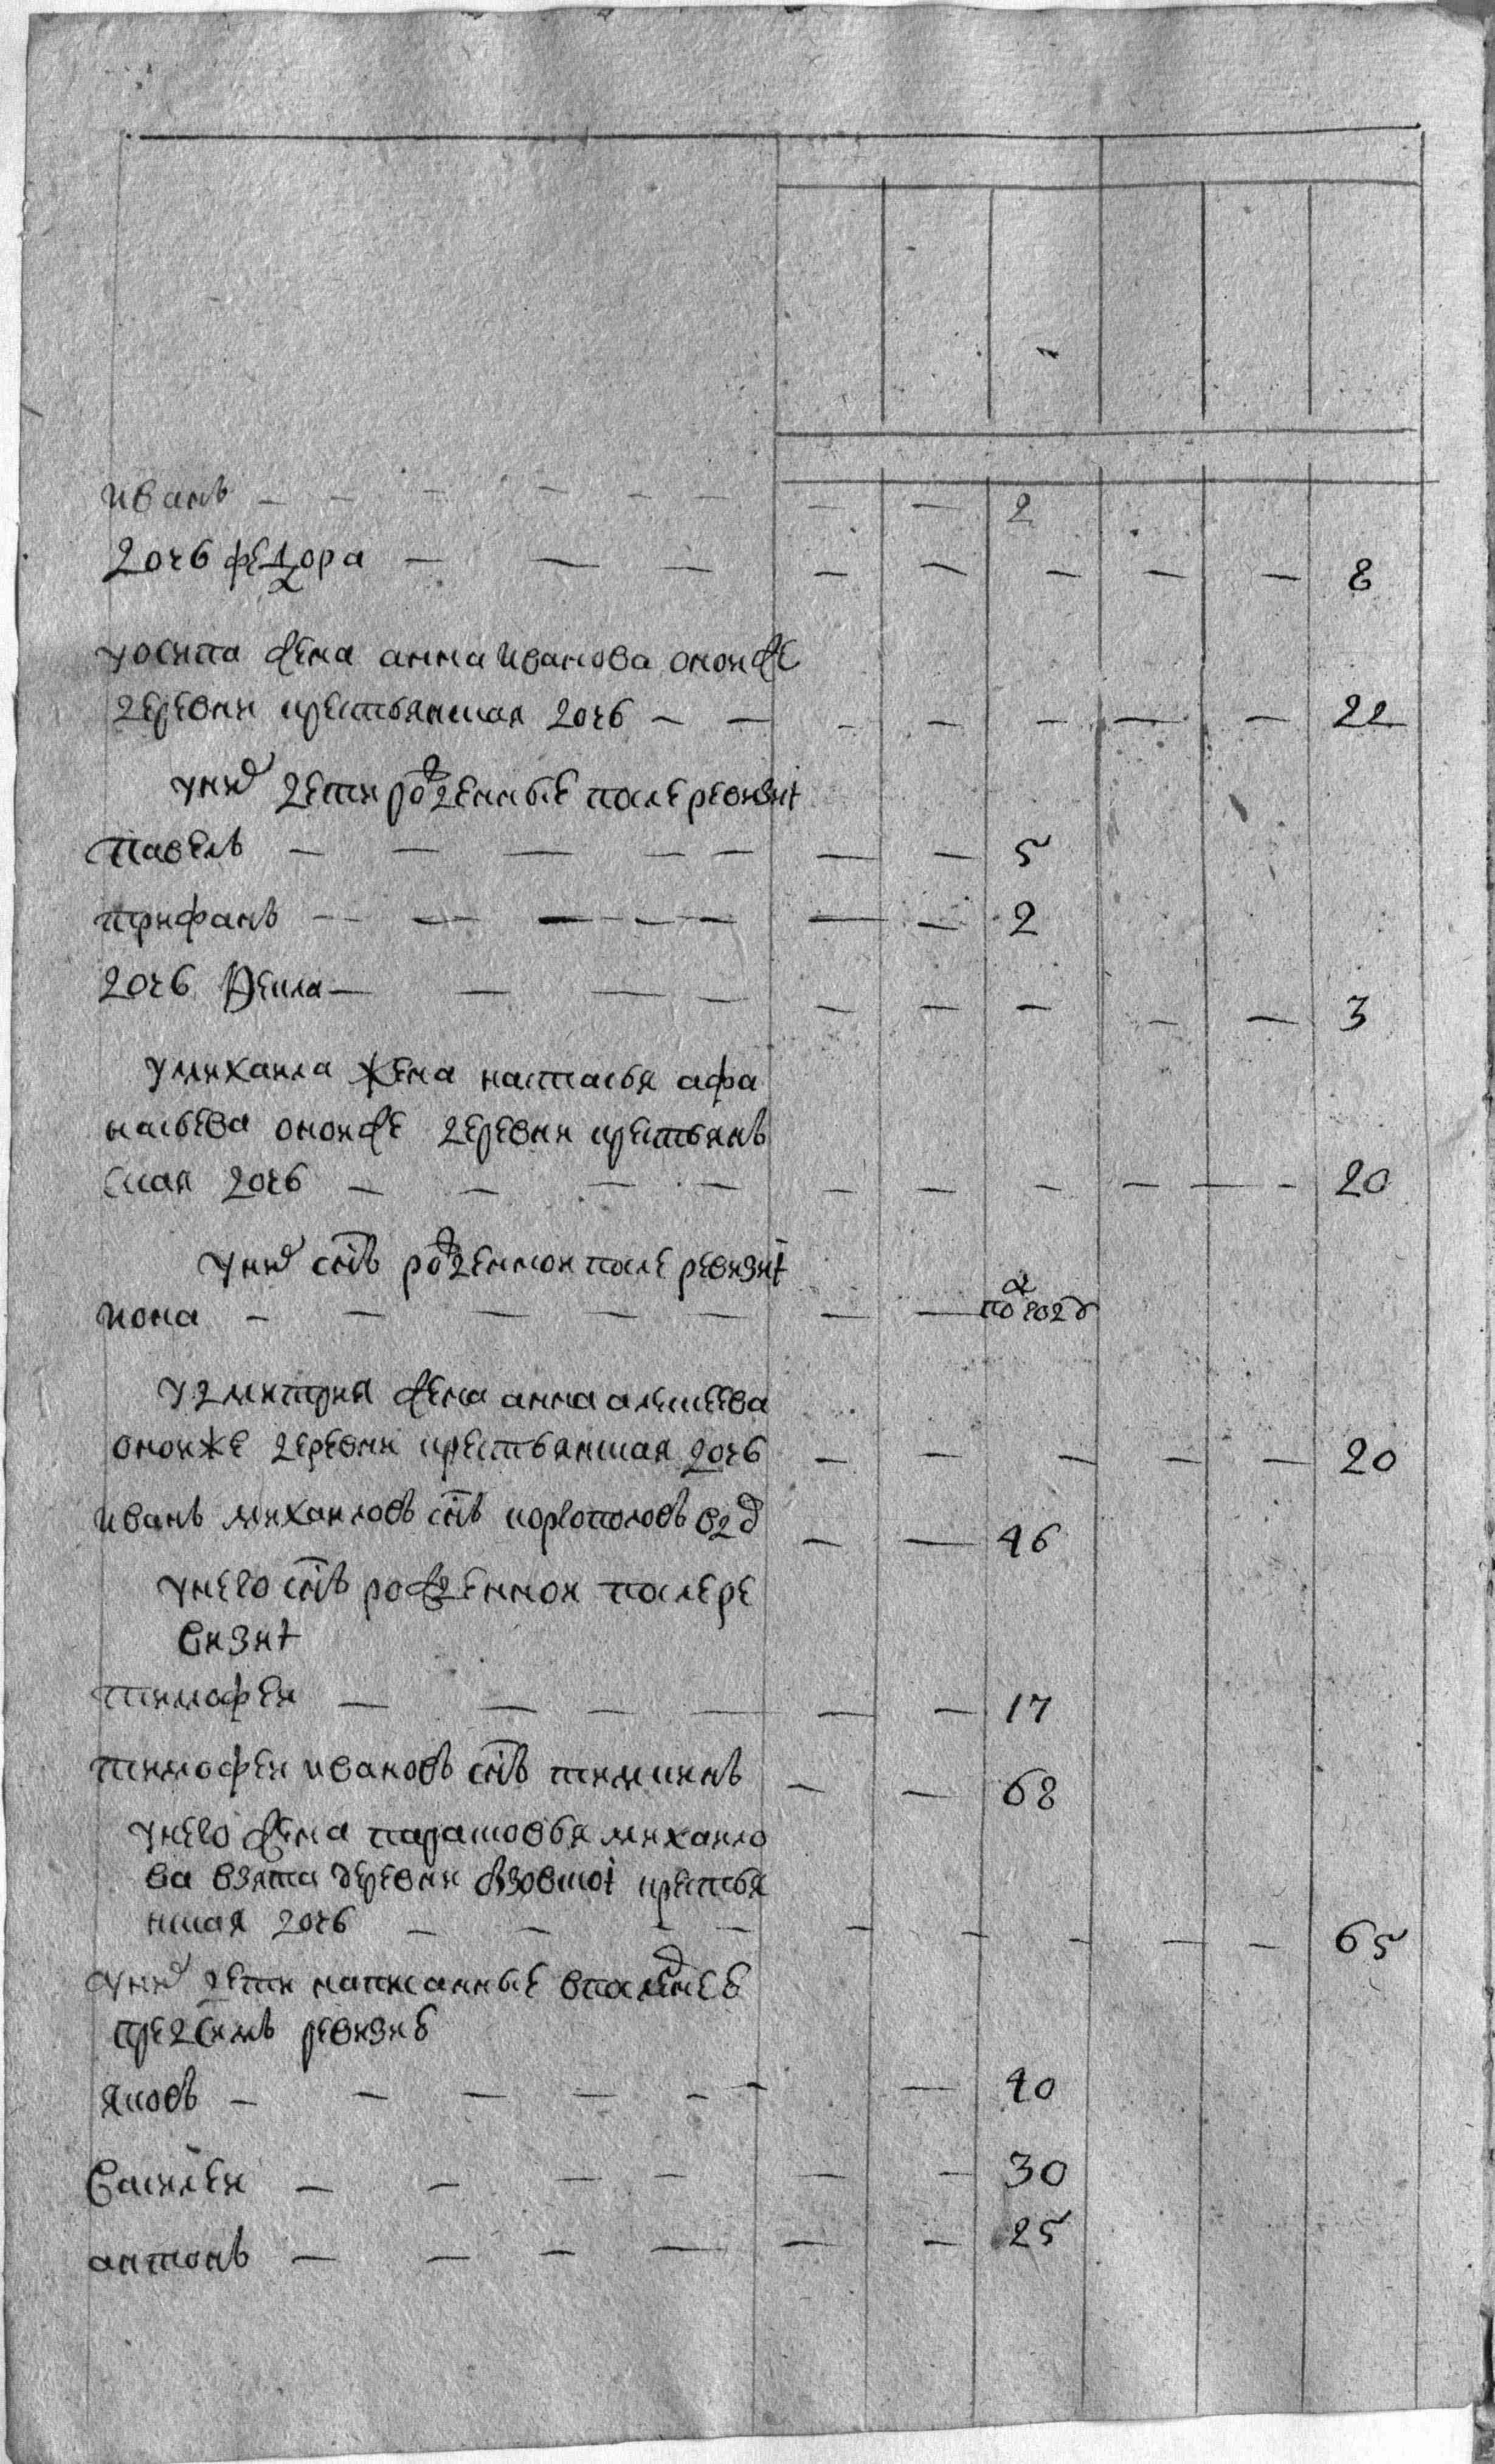 иванъ — — — — — — — — 2
дочь федора — — — — — — — — 8
уосипа жена анна иванова оной же
деревни крестьянская дочь — — — — — — — 22
уних дети рожденные после ревизии
павелъ — — — — — — — 5
трифанъ — — — — — — — 2
дочь фекла — — — — — — — — — 3
умихаила жена настасья афа
насьева оной же деревни крестьянъ
ская дочь — — — — — — — — — — 20
уних снъ рожденной после ревизии
иона — — — — — — — по году
удмитрия жена анна алексеева
оной же деревни крестьянская дочь — — — — — 20
иванъ михаиловъ снъ вд — — 46
унего снъ рожденной после ре
визии
тимофеи — — — — — — 17
тимофеи ивановъ снъ — — 68
унего жена парасковья михаило
ва взята деревни крестья
нская дочь — — — — — — — — — 65
уних дети написанные впоследнее
пред симъ ревизие
яковъ — — — — — — — 40
василеи — — — — — — 30
антонъ — — — — — — 25